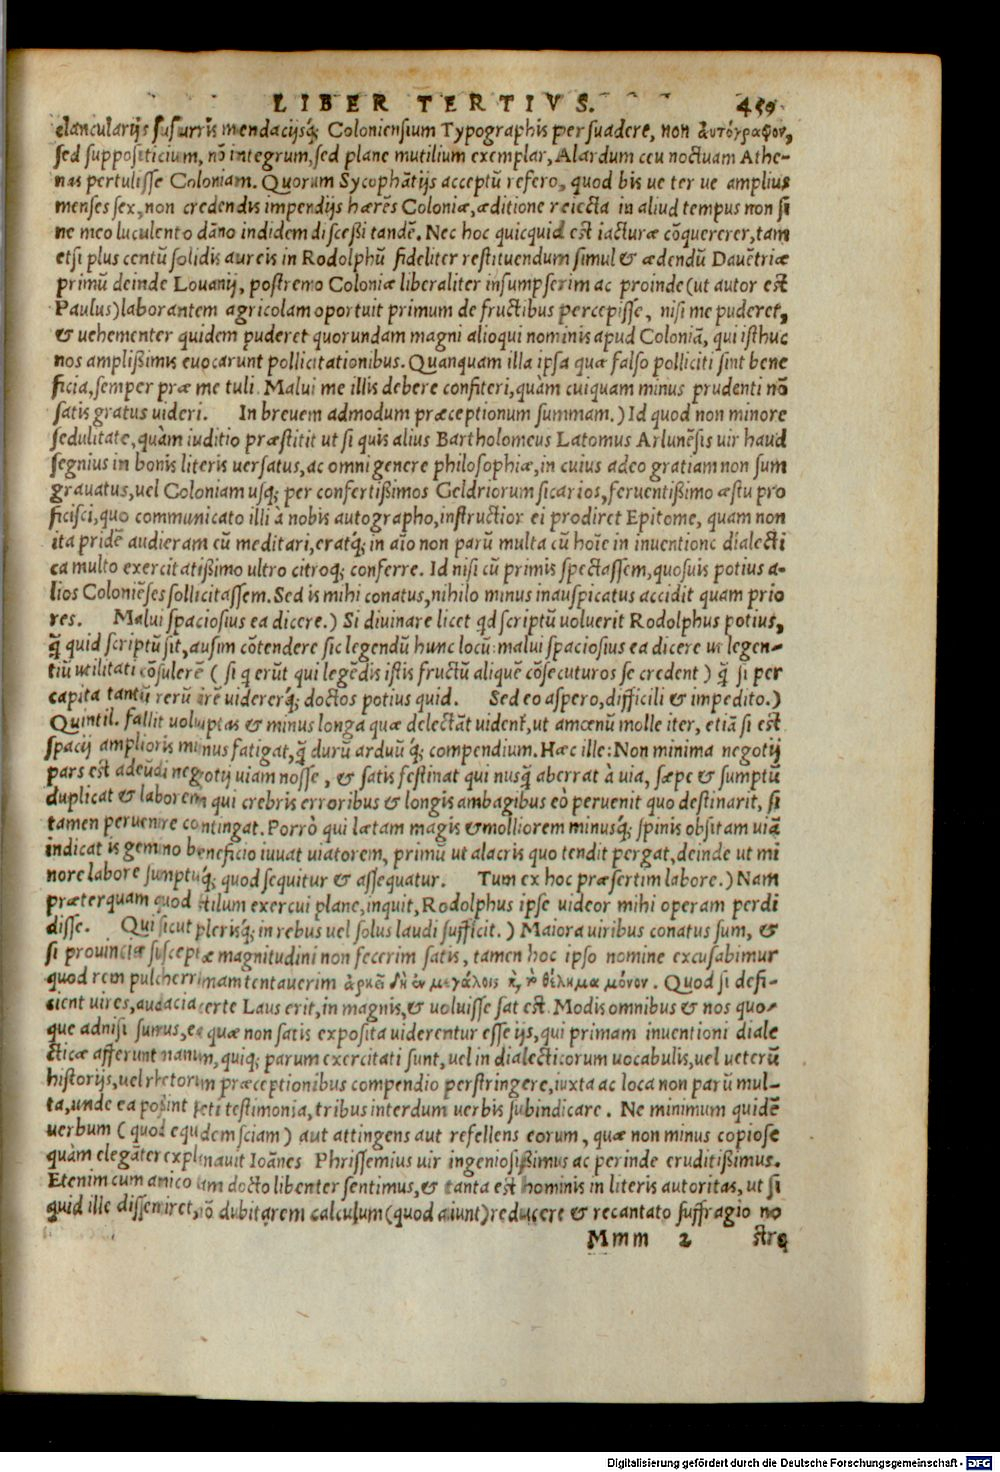 LIBER TERTIVS. 459
clanculariis susurris mendacijsq; Coloniensium Typographis persuadere, non αυτόγραφον,
sed suppositicium, nō integrum, sed plane mutilium exemplar, Alardum ceu noctuam Athe-
nas pertulisse Coloniam. Quorum Sycophātijs acceptū refero, quod bis ue ter ue amplius
menses sex, non credendis impendijs hærēs Coloniæ, æditione reiecta in aliud tempus non si
ne meo luculento dāno indidem discessi tandē. Nec hoc quicquid est iacturæ cōquererer, tam
etsi plus centū solidis aureis in Rodolphū fideliter restituendum simul & ædendū Dauētriæ
primū deinde Louanij, postremo Coloniæ liberaliter insumpserim ac proinde (ut autor est
Paulus) laborantem agricolam oportuit primum de fructibus percepisse, nisi me puderet,
& uehementer quidem puderet quorundam magni alioqui nominis apud Coloniā, qui isthuc
nos amplissimis euocarunt pollicitationibus. Quanquam illa ipsa quæ falso polliciti sint bene
ficia, semper præ me tuli. Malui me illis debere confiteri, quàm cuiquam minus prudenti nō
satis gratus uideri. In breuem admodum præceptionum summam.) Id quod non minore
sedulitate, quàm iuditio præstitit ut si quis alius Bartholomeus Latomus Arlunēsis uir haud
segnius in bonis literis uersatus, ac omni genere philosophiæ, in cuius adeo gratiam non sum
grauatus, uel Coloniam usq; per confertissimos Geldriorum sicarios, feruentissimo æstu pro
ficisci, quo communicato illi à nobis autographo, instructior ei prodiret Epitome, quam non
ita pridē audieram cū meditari, eratq; in aīo non parū multa cū hoīe in inuentione dialecti
ca multo exercitatissimo ultro citroq; conferre. Id nisi cū primis spectassem, quosuis potius a-
lios Coloniēses sollicitassem. Sed is mihi conatus, nihilo minus inauspicatus accidit quam prio
res. Malui spaciosius ea dicere.) Si diuinare licet qd scriptū uoluerit Rodolphus potius,
q̄ quid scriptū sit, ausim cōtendere sic legendū hunc locū: malui spaciosius ea dicere ut legen-
tiū utilitati cōsulerē (si q erūt qui legēdis istis fructū aliquē cōsecuturos se credent) q̄ si per
capita tantū rerū irē uidererq; doctos potius quid. Sed eo aspero, difficili & impedito.)
Quintil. fallit uoluptas & minus longa quæ delectāt uident, ut amœnū molle iter, etiā si est
spacij amplioris minus fatigat, q̄ durū arduū q; compendium. Hæc ille: Non minima negotij
pars est adeūdi negotij uiam nosse, & satis festinat qui nusq̄ aberrat à uia, sæpe & sumptū
duplicat & laborem qui crebris erroribus & longis ambagibus eò peruenit quo destinarit, si
tamen peruenire contingat. Porrò qui lætam magis & molliorem minusq; spinis obsitam uiā
indicat is gemino beneficio iuuat uiatorem, primū ut alacris quo tendit pergat, deinde ut mi
nore labore sumptuq; quod sequitur & assequatur. Tum ex hoc præsertim labore.) Nam
præterquam quod stilum exercui plane, inquit, Rodolphus ipse uideor mihi operam perdi
disse. Qui sicut plerisq; in rebus uel solus laudi sufficit.) Maiora uiribus conatus sum, &
si prouinciæ susceptæ magnitudini non fecerim satis, tamen hoc ipso nomine excusabimur
quod rem pulcherrimam tentauerim ἀρκεῖ δὴ ἐν μεγάλοις κỳ τὸ θέλημα μόνον. Quod si defi-
cient uires, audacia certe Laus erit, in magnis, & uoluisse sat est. Modis omnibus & nos quo-
que adnisi sumus, ea quæ non satis exposita uiderentur esse ijs, qui primam inuentioni diale
cticæ afferunt manum, quiq; parum exercitati sunt, uel in dialecticorum uocabulis, uel ueterū
historijs, uel rhetorum præceptionibus compendio perstringere, iuxta ac loca non parū mul-
ta, unde ea possint peti testimonia, tribus interdum uerbis subindicare. Ne minimum quidē
uerbum (quod equidem sciam) aut attingens aut refellens eorum, quæ non minus copiose
quàm elegāter explanauit Ioānes Phrissemius uir ingeniosissimus ac perinde eruditissimus.
Etenim cum amico tam docto libenter sentimus, & tanta est hominis in literis autoritas, ut si
quid ille dissentiret, nō dubitarem calculum (quod aiunt) reducere & recantato suffragio no
Mmm 2 stro
Digitalisierung gefördert durch die Deutsche Forschungsgemeinschaft - DFG